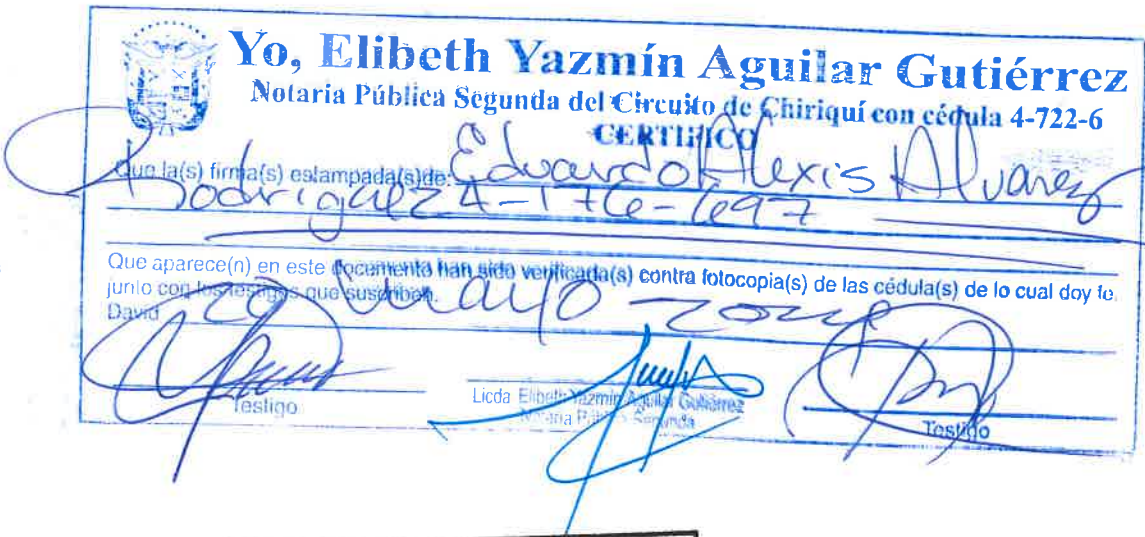 Yo, Elibeth Yazmín Aguilar Gutiérrez
Notaria Pública Segunda del Circuito de Chiriquí con cédula 4-722-6
CERTIFICO
Que la(s) firma(s) estampada(s)de: Eduardo Alexis Alvarez
Rodriguez 4-176-697
Que aparece(n) en este documento han sido verificada(s) contra fotocopia(s) de las cédula(s) de lo cual doy fe.
junto con los testigos que suscriben.
David mayo
Testigo
Licda Elibeth Yazmín Aguilar Gutiérrez
Notaria Pública Segunda
Testigo